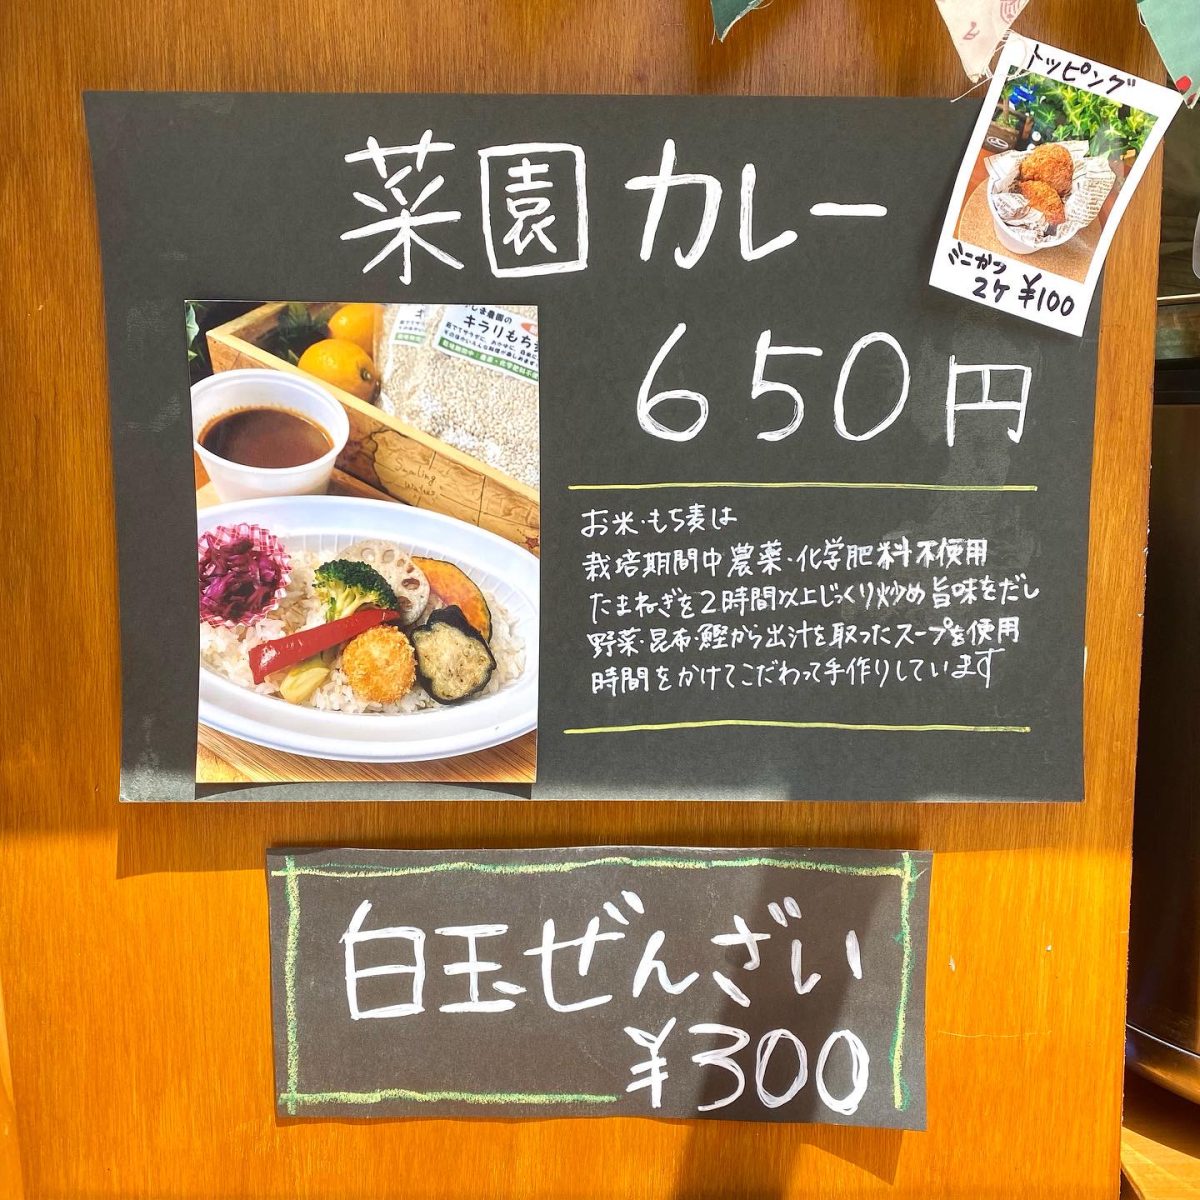 トッピング
ミニカツ
2ケ ¥100
菜園カレー
650円
お米・もち麦は
栽培期間中農薬・化学肥料不使用
たまねぎを2時間以上じっくり炒め旨味をだし
野菜・昆布・鰹から出汁を取ったスープを使用
時間をかけてこだわって手作りしています
農園の
キラリもち
白玉ぜんざい
¥300